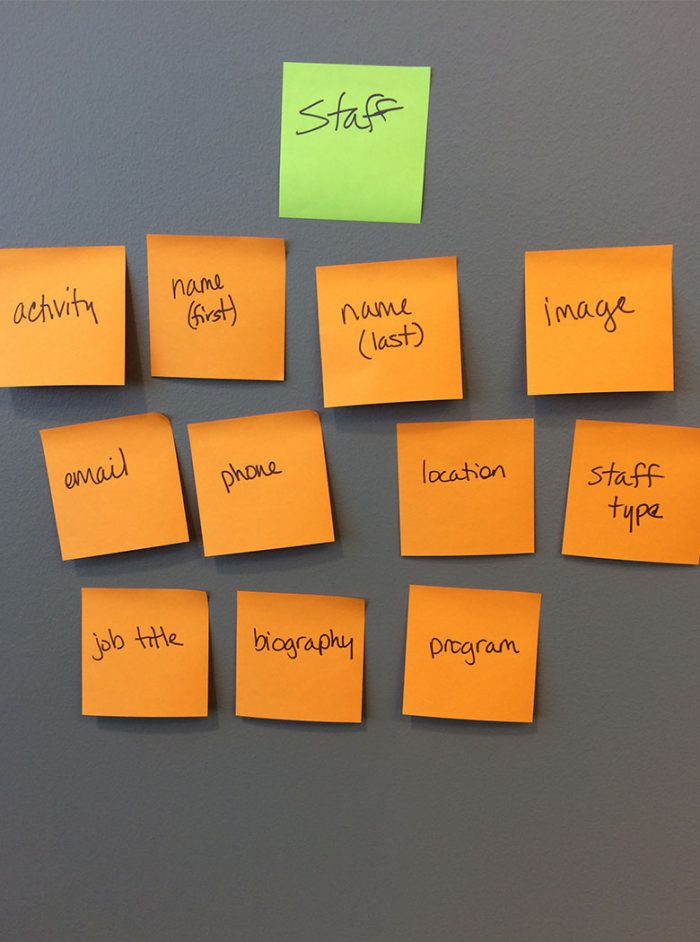 Staff
activity
name
(first)
name
(last)
image
email
phone
location
staff
type
job title
biography
program